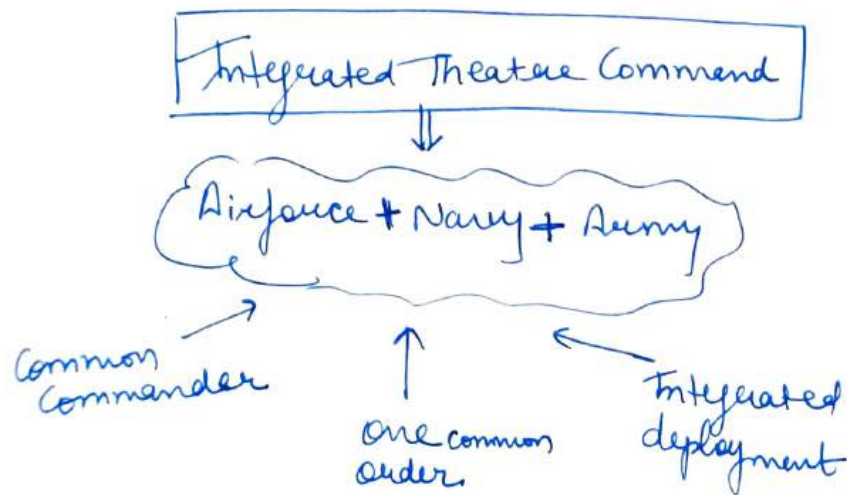 Integrated Theatre Command
Airforce + Navy + Army
Common
Commander
one common
order
Integrated
deployment